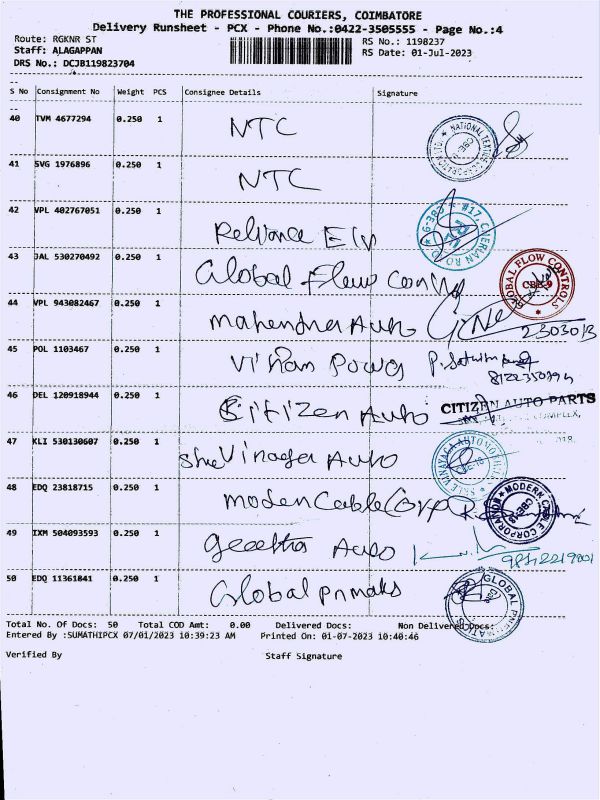 THE PROFESSIONAL COURIERS, COIMBATORE
Delivery Runsheet - PCX - Phone No.:0422-3505555 - Page No.:4
Route: RGKNR ST RS No.: 1198237
Staff: ALAGAPPAN RS Date: 01-Jul-2023
DRS No.: DCJB119823704
S No Consignment No Weight PCS Consignee Details Signature
40 TVM 4677294 0.250 1 NTC
41 SVG 1976896 0.250 1 NTC
42 VPL 402767051 0.250 1 Reliance
43 JAL 530270492 0.250 1 Global Flow GLOBAL FLOW CONTROLS CBE-9
44 VPL 943082467 0.250 1 Mahendra Auto
45 POL 1103467 0.250 1
46 DEL 120918944 0.250 1 Citizen Auto CITIZEN AUTO PARTS
COMPLEX,
47 KLI 530130607 0.250 1 Shre Vinayaga Auto
48 EDQ 23818715 0.250 1 Moden Cable Corp MODERN CABLE CORPORATION
49 IXM 504093593 0.250 1 Geeetha Auto
50 EDQ 11361841 0.250 1 Global GLOBAL PNEUMATICS
Total No. Of Docs: 50 Total COD Amt: 0.00 Delivered Docs: Non Delivered Docs:
Entered By :SUMATHIPCX 07/01/2023 10:39:23 AM Printed On: 01-07-2023 10:40:46
Verified By Staff Signature